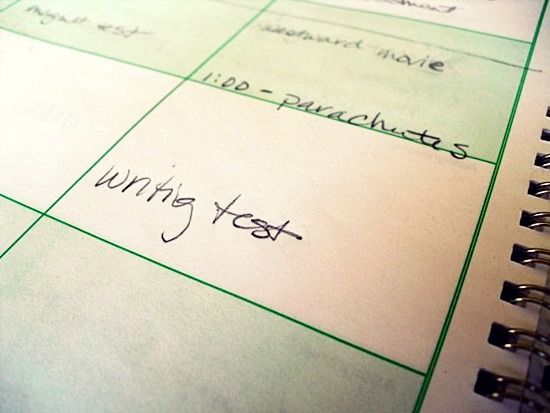 test
westward movie
1:00 - parachutes
writig test